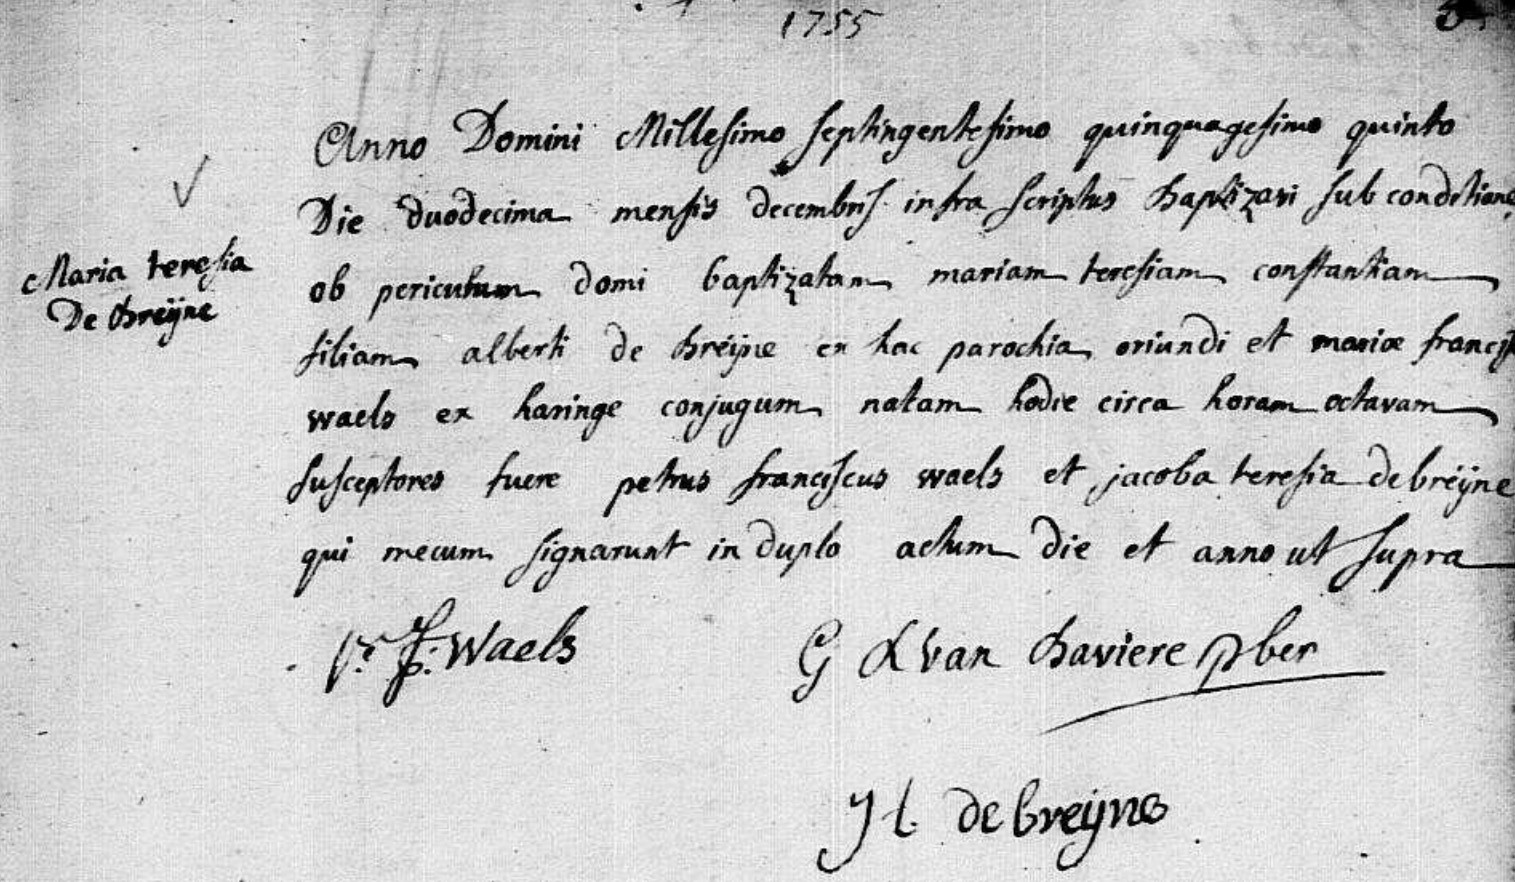 1755
Anno Domini Millesimo septingentesimo quinquagesimo quinto
Die duodecima mensis decembris infra scriptus baptizavi sub conditione
Maria teresia
De breÿne
ob periculum domi baptizatam mariam teresiam constantiam
filiam alberti de breÿne ex hac parochia oriundi et mariæ francisc
waels ex haringe conjugum natam hodie circa horam octavam
susceptores fuere petrus franciscus waels et jacoba teresia de breÿne
qui mecum signarunt in duplo actum die et anno ut supra
pr. f: Waels
G L van Baviere pber
J t. de breyne